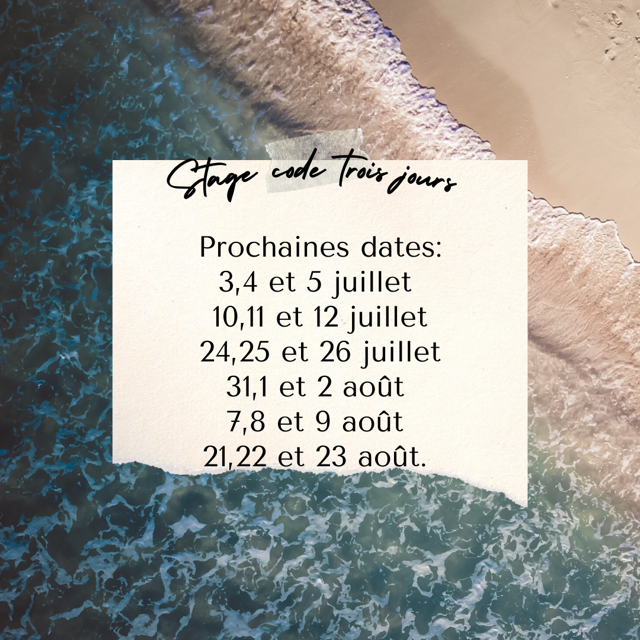 Stage code trois jours
Prochaines dates:
3,4 et 5 juillet
10,11 et 12 juillet
24,25 et 26 juillet
31,1 et 2 août
7,8 et 9 août
21,22 et 23 août.